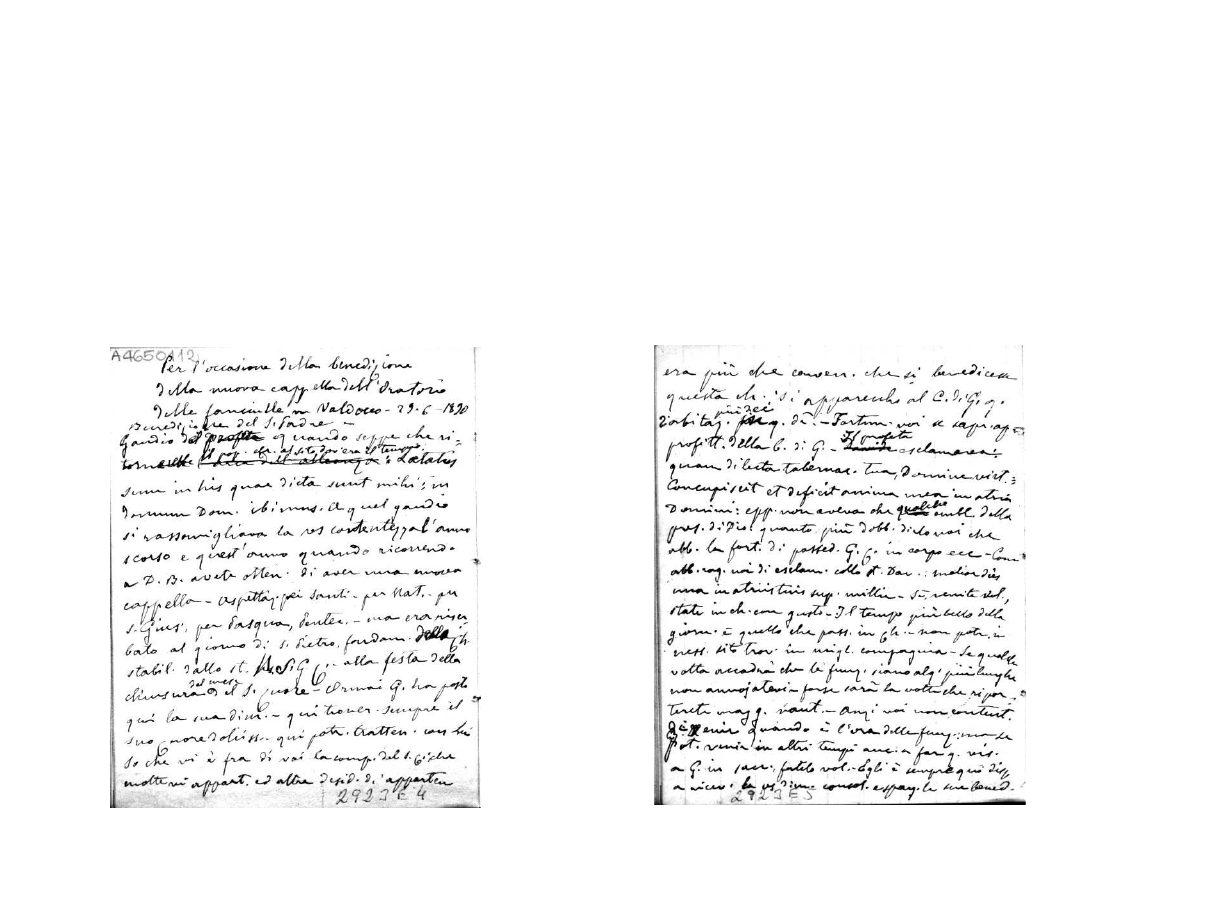 A4650112
Per l'occasione della benedizione
della nuova cappella dell'Oratorio
delle fanciulle in Valdocco - 29-6-1890
Benedizione del S. Padre -
Gaudio del profeta quando seppe che ri=
: Laetatus
sum in his quae dicta sunt mihi; in
domum Dom. ibimus. A quel gaudio
si rassomigliava la vs contentezza l'anno
scorso e quest'anno quando ricorrendo
a D. B. avete otten. di aver una nuova
cappella - Aspettaz. pei Santi - per Nat. - per
S. Gius., per Pasqua, Pentec. - ma era riser
bato al giorno di S. Pietro, fondam. della Ch.
stabil. dallo st. G. C. - alla festa della
chiusura del mese d il S. Cuore - Ormai G. ha posto
qui la sua dim. - qui trover. sempre il
suo cuore dolciss. - qui potr. tratten. con lui
So che vi è fra di voi la comp. del S. C. che
molte vi appart. ed altre desid. d'apparten
2923 E 4
era più che conven. che si benedicesse
questa ch., si apparecchi al C. di G. q.
d'abitaz. q. dì. - Fortun. voi se sapr. ap=
profitt. della b. di G. - Il profeta Davide esclamava:
quam dilecta tabernac. tua, Domine virt.=
Concupiscit et deficit anima mea in atria
Domini: epp. non aveva che qualche embl. della
pres. di Dio: quanto più dobb. dirlo voi che
abb. la fort. di possed. G. C. in corpo ecc - Con
abb. rag. voi di esclam. collo st. Dav.: melior dies
una in atriis tuis sup. millia - Sì, venite vol.,
state in ch. con gusto - Il tempo più bello della
giorn. è quello che pass. in Ch. - non potr. in
ness. sito trov. in migl. compagnia - Se qualche
volta accadrà che le funz. siano alq. più lunghe
non annojatevi - forse sarà la volta che ripor
terete magg. vant. - Anzi voi non content.
di venir quando è l'ora delle funz. ma se
pot. venir in altri tempi anc. a far q. vis.
a G. in sacr., fatelo vol. - Egli è sempre qui disp.
a ricev. le vs dim. consol. espang. le sue bened.
2923 E 5